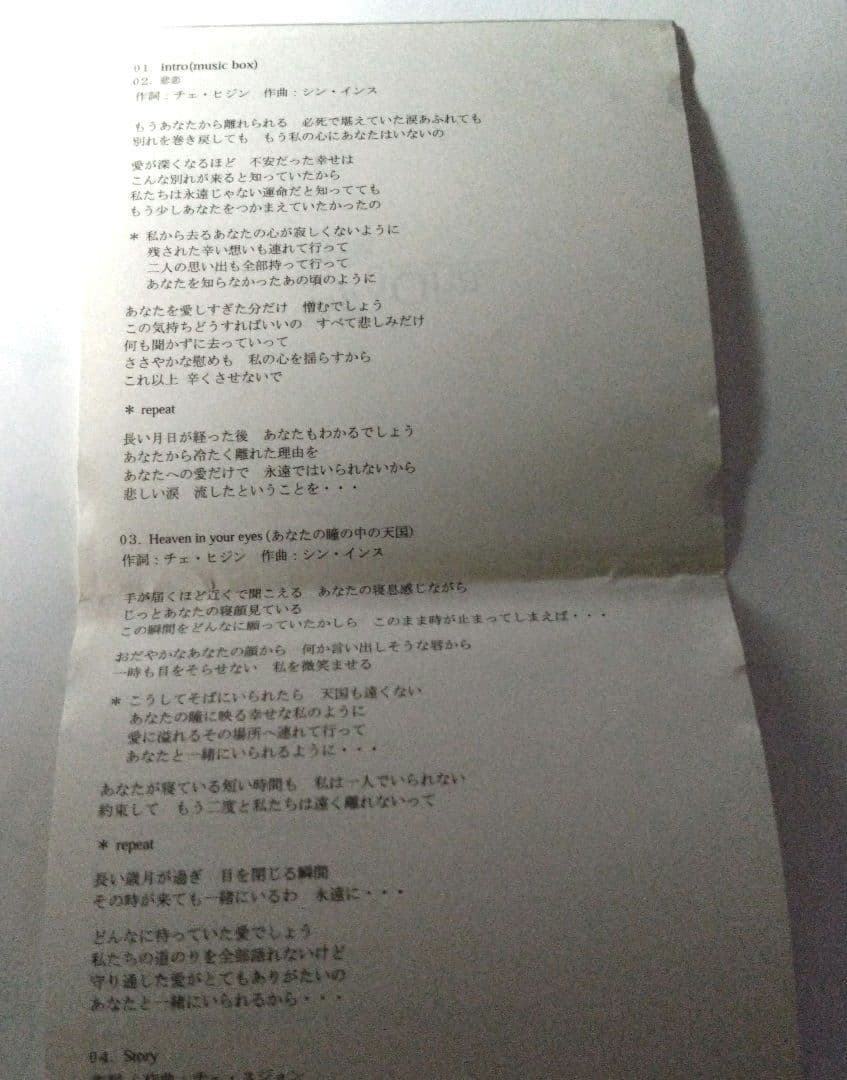 01 intro(music box)
02. 悲恋
作詞：チェ・ヒジン 作曲：シン・インス
もうあなたから離れられる 必死で堪えていた涙あふれても
別れを巻き戻しても もう私の心にあなたはいないの
愛が深くなるほど 不安だった幸せは
こんな別れが来ると知っていたから
私たちは永遠じゃない運命だと知ってても
もう少しあなたをつかまえていたかったの
＊ 私から去るあなたの心が寂しくないように
残された辛い想いも連れて行って
二人の思い出も全部持って行って
あなたを知らなかったあの頃のように
あなたを愛しすぎた分だけ 憎むでしょう
この気持ちどうすればいいの すべて悲しみだけ
何も聞かずに去っていって
ささやかな慰めも 私の心を揺らすから
これ以上 辛くさせないで
＊ repeat
長い月日が経った後 あなたもわかるでしょう
あなたから冷たく離れた理由を
あなたへの愛だけで 永遠ではいられないから
悲しい涙 流したということを・・・
03. Heaven in your eyes (あなたの瞳の中の天国)
作詞：チェ・ヒジン 作曲：シン・インス
手が届くほど近くで聞こえる あなたの寝息感じながら
じっとあなたの寝顔見ている
この瞬間をどんなに願っていたかしら このまま時が止まってしまえば・・・
おだやかなあなたの顔から 何か言い出しそうな唇から
一時も目をそらせない 私を微笑ませる
＊ こうしてそばにいられたら 天国も遠くない
あなたの瞳に映る幸せな私のように
愛に溢れるその場所へ連れて行って
あなたと一緒にいられるように・・・
あなたが寝ている短い時間も 私は一人でいられない
約束して もう二度と私たちは遠く離れないって
＊ repeat
長い歳月が過ぎ 目を閉じる瞬間
その時が来ても一緒にいるわ 永遠に・・・
どんなに待っていた愛でしょう
私たちの道のりを全部語れないけど
守り通した愛がとてもありがたいの
あなたと一緒にいられるから・・・
04. Story